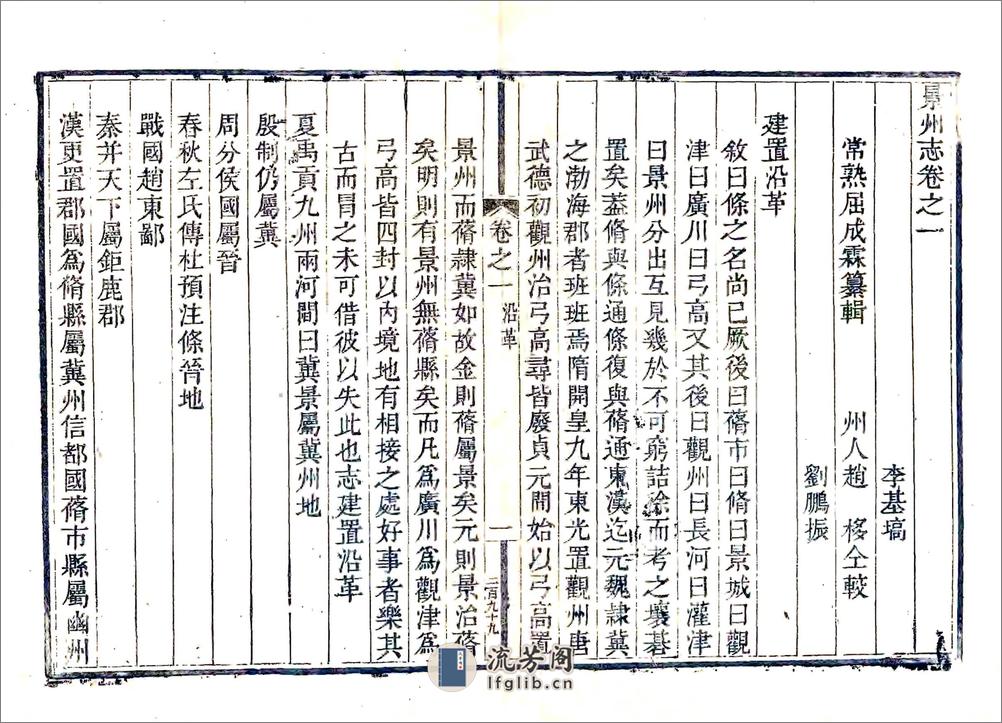 景州志卷之一
李基塙
常熟屈成霖纂輯　州人趙　移仝較
劉鵬振
建置沿革
敘曰條之名尚已厥後曰蓨市曰脩曰景城曰觀
津曰廣川曰弓高又其後曰觀州曰長河曰灌津
曰景州分出互見幾於不可窮詰徐而考之壤基
置矣葢脩與條通條復與蓨通東漢迄元魏隸冀
之渤海郡者班班焉隋開皇九年東光置觀州唐
武德初觀州治弓高尋皆廢貞元間始以弓高置
卷之一　沿革　一　二百九十九
景州而蓨隸冀如故金則蓨屬景矣元則景治蓨
矣明則有景州無蓨縣矣而凡爲廣川爲觀津爲
弓高皆四封以內境地有相接之處好事者樂其
古而冒之未可借彼以失此也志建置沿革
夏禹貢九州兩河間曰冀景屬冀州地
殷制仍屬冀
周分侯國屬晉
春秋左氏傳杜預注條晉地
戰國趙東鄙
秦并天下屬鉅鹿郡
漢更置郡國爲脩縣屬冀州信都國蓨市縣屬幽州
流芳閣
lfglib.cn